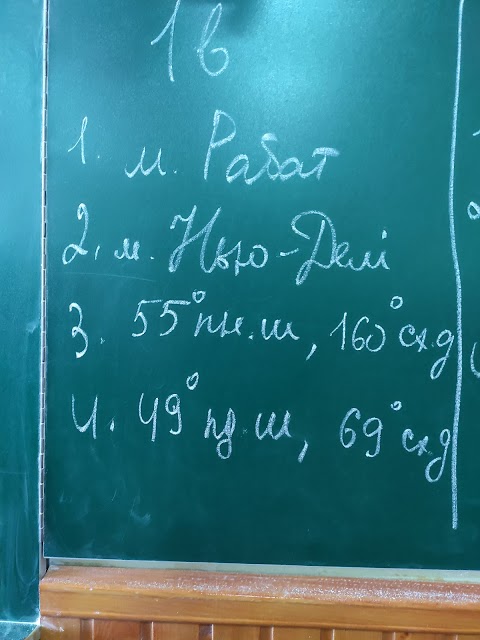 1 в
1. м. Рабат
2. м. Нью-Делі
3. 55° пн.ш, 160° сх.д
4. 49° пд.ш, 69° сх.д